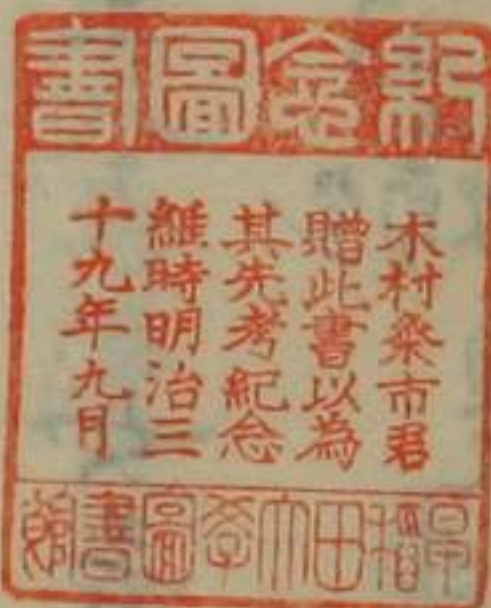 紀念圖書
木村粂市君
贈此書以為
其先考紀念
維時明治三
十九年九月
早稻田大學圖書館